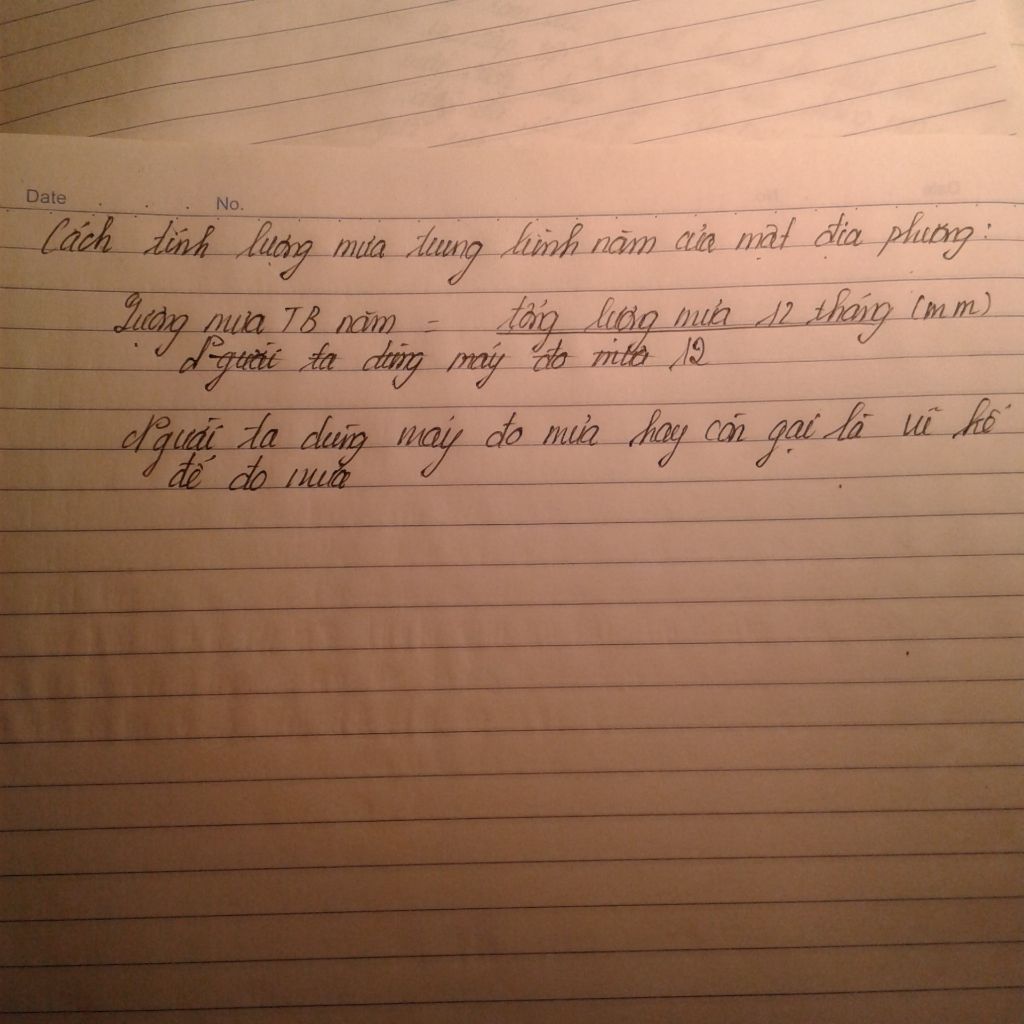 Date . . . No.
Cách tính lượng mưa trung bình năm của một địa phương:
Lượng mưa TB năm = tổng lượng mưa 12 tháng (mm)
Người ta dùng máy đo mưa 12
Người ta dùng máy đo mưa hay còn gọi là vũ kế
để đo mưa